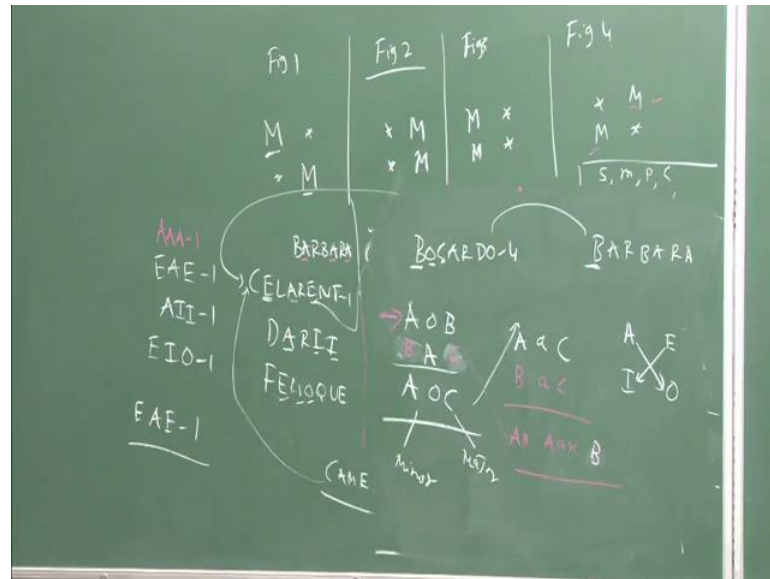 Fig 1
Fig 2
Fig 4
M *
* M
* M
* M
M *
M *
* M
M *
S, M, P, C,
AAA-1
EAE-1
AII-1
EIO-1
EAE-1
BARBARA
CELARENT-1
DARII
FELIOQUE
CAME
BOCARDO-4
BARBARA
A O B
B A
A O C
Minor
A a C
B a C
All A a x B
A E
I O